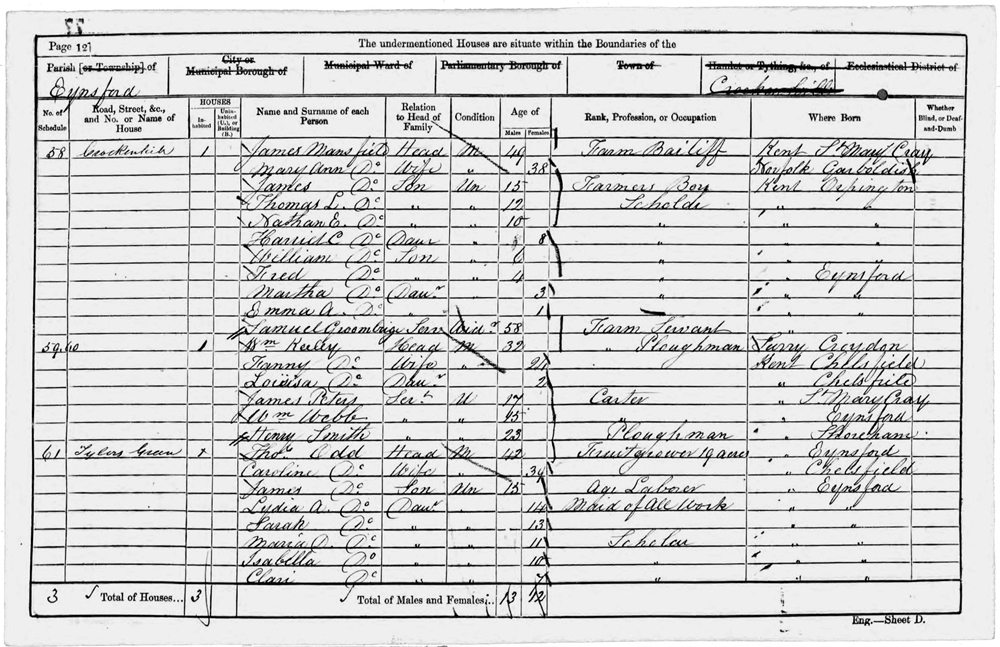 Page 12]
The undermentioned Houses are situate within the Boundaries of the
Parish [or Township] of
City or Municipal Borough of
Municipal Ward of
Parliamentary Borough of
Town of
Hamlet or Tything, &c., of
Ecclesiastical District of
Eynsford
No. of Schedule
Road, Street, &c., and No. or Name of House
HOUSES
Inhabited
Uninhabited (U.), or Building (B.)
Name and Surname of each Person
Relation to Head of Family
Condition
Age of
Males
Females
Rank, Profession, or Occupation
Where Born
Whether Blind, or Deaf-and-Dumb
58 Crockenhill 1 James Mansfield Head M 49 Farm Bailiff Kent St Mary Cray
Mary Ann Do Wife " 38 Norfolk Garboldish
James Do Son Un 15 Farmers Boy Kent Orpington
Thomas L. Do " " 12 Scholar " "
Nathan E. Do " " 10 " " "
Harriet C Do Daur " 8 " " "
William Do Son " 6 " " "
Fred Do " " 4 " " Eynsford
Martha Do Daur " 3 " "
Emma A. Do " 1 " "
Samuel Groombrige Serv Widr 58 Farm Servant
59.60 1 Wm Kerley Head M 32 " Ploughman Surry Croydon
Fanny Do Wife " Kent Chelsfield
Louisa Do Daur 2 " Chelsfield
James Peters Sert U 17 Carter " St Mary Cray
Wm Webb " " 15 " " Eynsford
Henry Smith " " 23 Ploughman " Shoreham
61 Tylers Green Thos Odd Head M 42 Fruitgrower 19 acres " Eynsford
Caroline Do Wife " 39 " Chelsfield
James Do Son Un 15 Agr Laborer " Eynsford
Lydia A. Do Daur 14 Maid of All Work " "
Sarah Do " " 13 " "
Maria D. Do " " 11 Scholar " "
Isabella Do " " 10 " " "
Clari Do " " 7 " " "
3 Total of Houses... 3 Total of Males and Females... 13 12
Eng.—Sheet D.